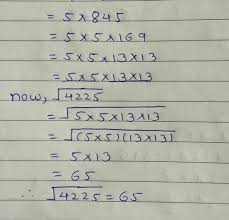 = 5 × 845
= 5 × 5 × 169
= 5 × 5 × 13 × 13
= 5 × 5 × 13 × 13
now, √4225
= √5 × 5 × 13 × 13
= √(5 × 5) (13 × 13)
= 5 × 13
= 65
∴ √4225 = 65